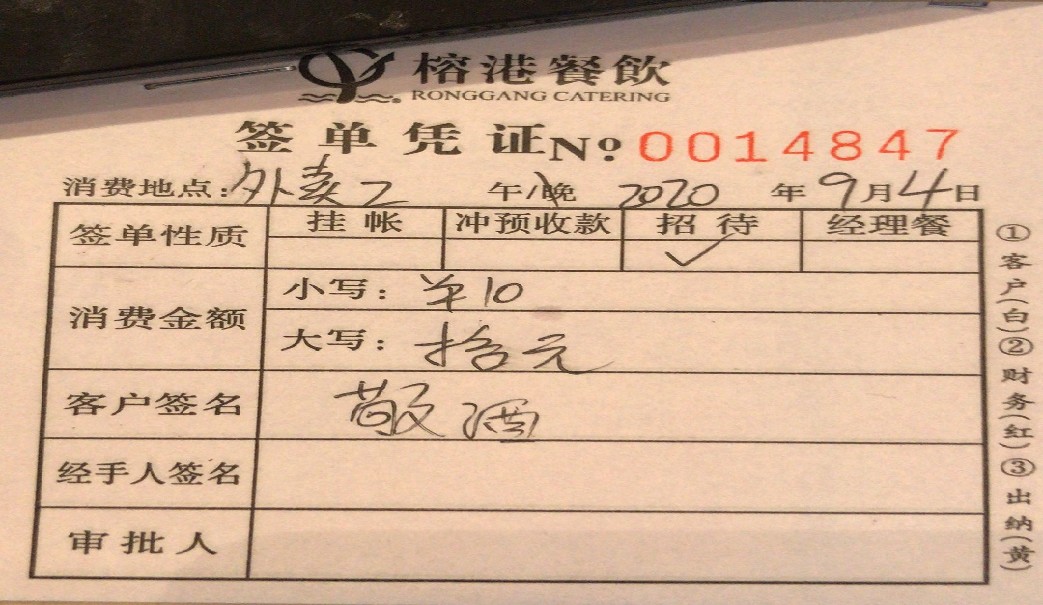 榕港餐飲
RONGGANG CATERING
签单凭证 No. 0014847
消费地点:外卖乙 午/晚 2020年9月4日
签单性质 挂帐 冲预收款 招待 经理餐
✓
消费金额 小写:单10
大写:拾元
客户签名 敬酒
经手人签名
审批人
①客户(白)②财务(红)③出纳(黄)